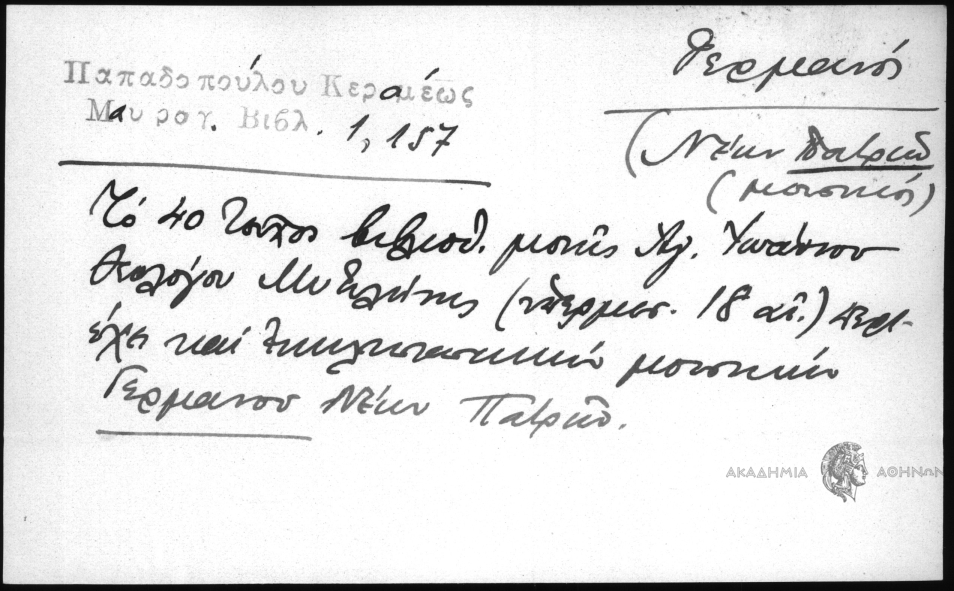 Παπαδοπούλου Κεραμέως
Μαυρογ. Βιβλ. 1, 157
Γερμανός
(Νέων Πατρῶν
(μουσικός)
Τό 40 βιβλιοθ. μονῆς Ἁγ. Ἰωάννου
Θεολόγου Μυτιλήνης (18 αἰ.) περι-
έχει καί ἐκκλησιαστικήν μουσικήν
Γερμανοῦ Νέων Πατρῶν.
ΑΚΑΔΗΜΙΑ ΑΘΗΝΩΝ